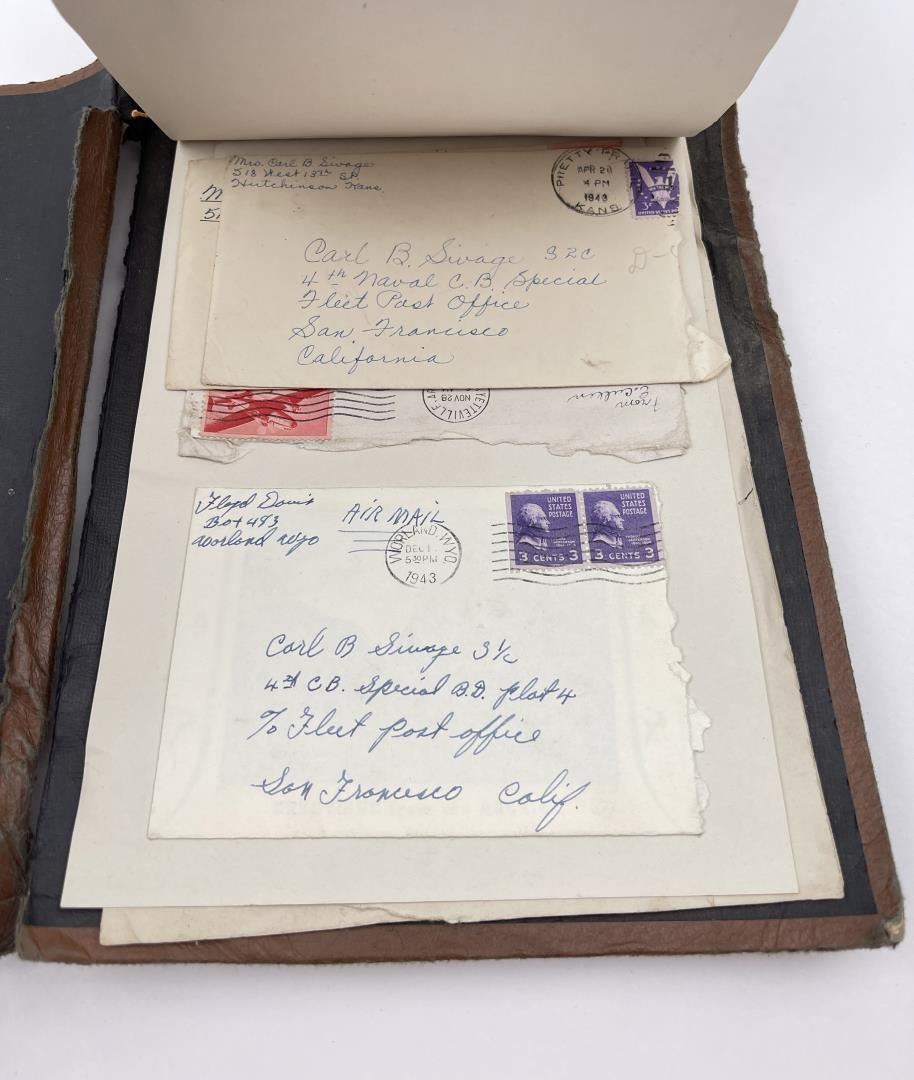 Mrs. Carl B Sivage
518 West 13th St.
Hutchinson Kans.
PRETTY PR
APR 20
4 PM
1943
KANS
3¢
M
51
Carl B. Sivage S2C
4th Naval C.B. Special
Fleet Post Office
San Francisco
California
D-
NOV 28
YETTEVILLE AR
From
E. Cullen
Floyd Davis
Box 493
Worland Wyo
AIR MAIL
WORLAND, WYO.
DEC 1
5 30 PM
1943
UNITED STATES POSTAGE
3 CENTS 3
UNITED STATES POSTAGE
3 CENTS 3
Carl B Sivage S 1/c
4th C.B. Special B.D. Plat 4
% Fleet Post office
San Francesco Calif.